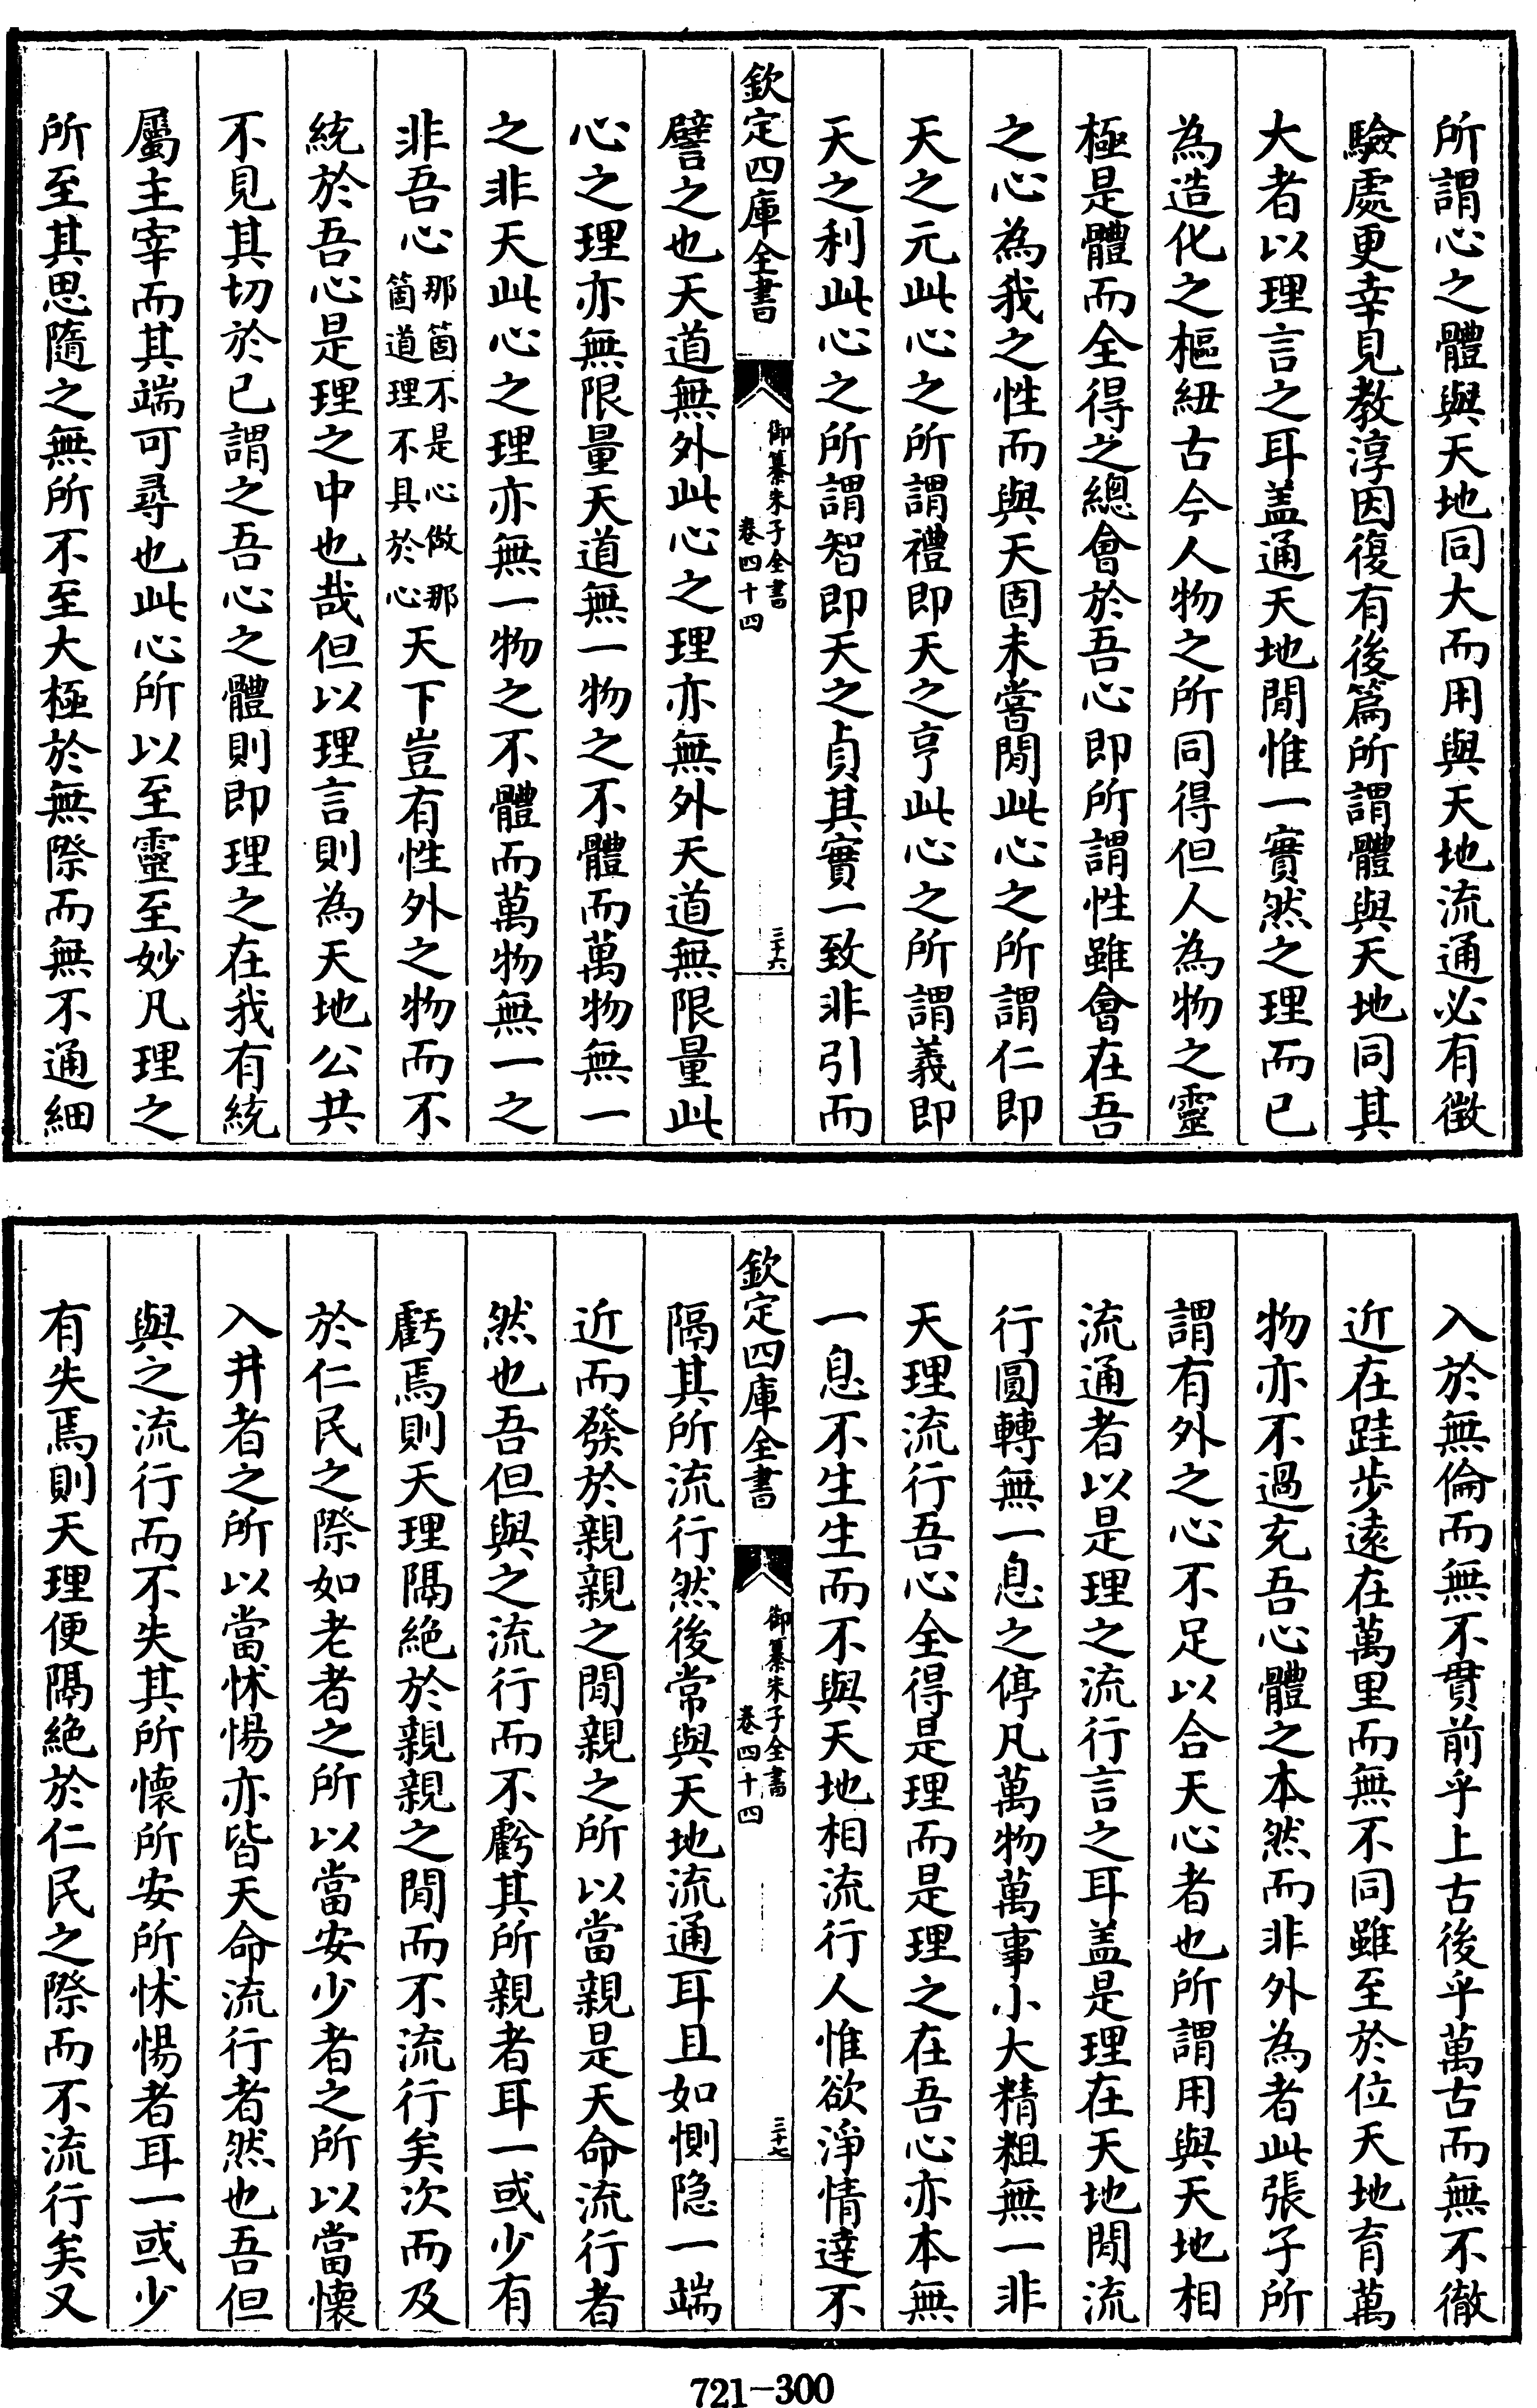 所謂心之體與天地同大而用與天地流通必有徴
驗處更幸見教淳因復有後篇所謂體與天地同其
大者以理言之耳盖通天地間惟一實然之理而已
為造化之樞紐古今人物之所同得但人為物之靈
極是體而全得之總會於吾心即所謂性雖會在吾
之心為我之性而與天固未嘗間此心之所謂仁即
天之元此心之所謂禮即天之亨此心之所謂義即
天之利此心之所謂智即天之貞其實一致非引而
欽定四庫全書
御纂朱子全書
卷四十四
三十六
譬之也天道無外此心之理亦無外天道無限量此
心之理亦無限量天道無一物之不體而萬物無一
之非天此心之理亦無一物之不體而萬物無一之
非吾心那箇不是心做那箇道理不具於心天下豈有性外之物而不
統於吾心是理之中也哉但以理言則為天地公共
不見其切於已謂之吾心之體則即理之在我有統
屬主宰而其端可尋也此心所以至靈至妙凡理之
所至其思隨之無所不至大極於無際而無不通細
入於無倫而無不貫前乎上古後乎萬古而無不徹
近在跬步遠在萬里而無不同雖至於位天地育萬
物亦不過充吾心體之本然而非外為者此張子所
謂有外之心不足以合天心者也所謂用與天地相
流通者以是理之流行言之耳盖是理在天地間流
行圓轉無一息之停凡萬物萬事小大精粗無一非
天理流行吾心全得是理而是理之在吾心亦本無
一息不生生而不與天地相流行人惟欲淨情達不
欽定四庫全書
御纂朱子全書
卷四十四
三十七
隔其所流行然後常與天地流通耳且如惻隐一端
近而發於親親之間親之所以當親是天命流行者
然也吾但與之流行而不虧其所親者耳一或少有
虧焉則天理隔絶於親親之間而不流行矣次而及
於仁民之際如老者之所以當安少者之所以當懷
入井者之所以當怵惕亦皆天命流行者然也吾但
與之流行而不失其所懷所安所怵惕者耳一或少
有失焉則天理便隔絶於仁民之際而不流行矣又
721-300